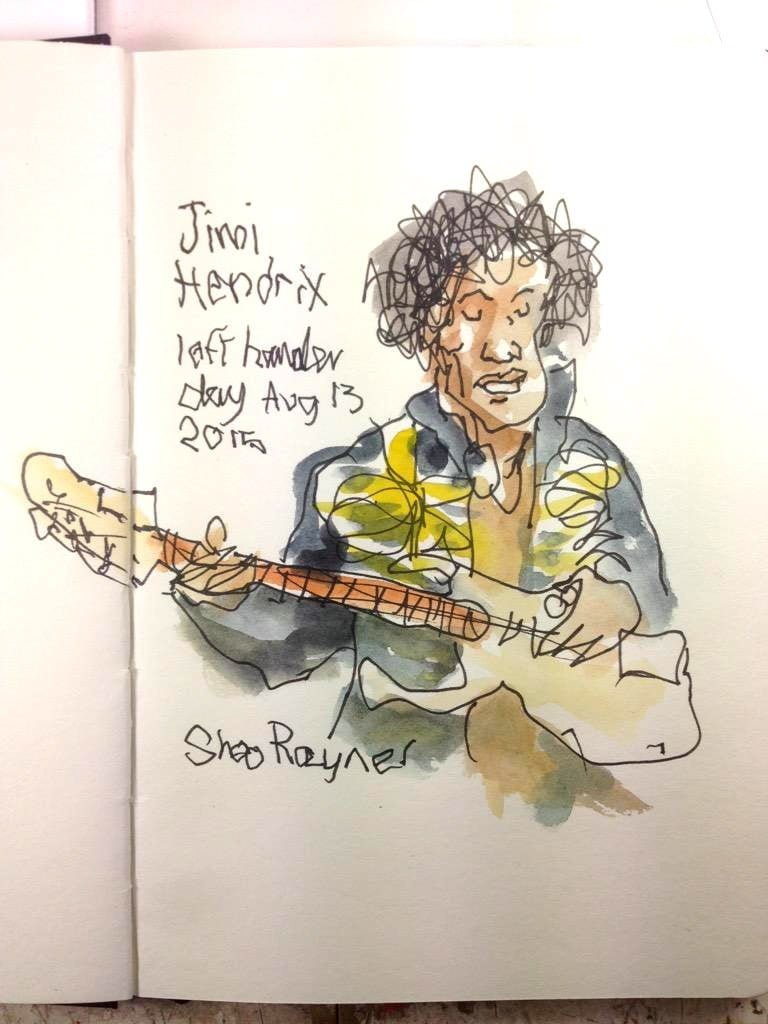 Jimi
Hendrix
left hander
day Aug 13
2015
Shoo Rayner